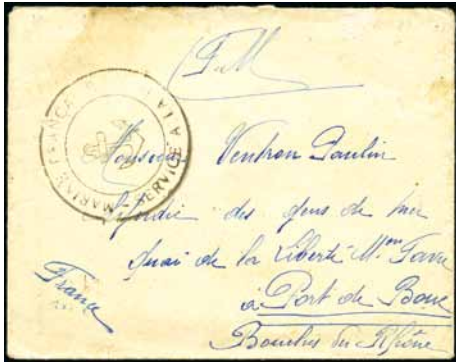 (F.M
MARINE FRANÇAISE
SERVICE À LA MER
Monsieur Ventron Paulin
Syndic des gens de mer
Quai de la Liberté Mson Favre
à Port de Bouc
Bouches du Rhône
France